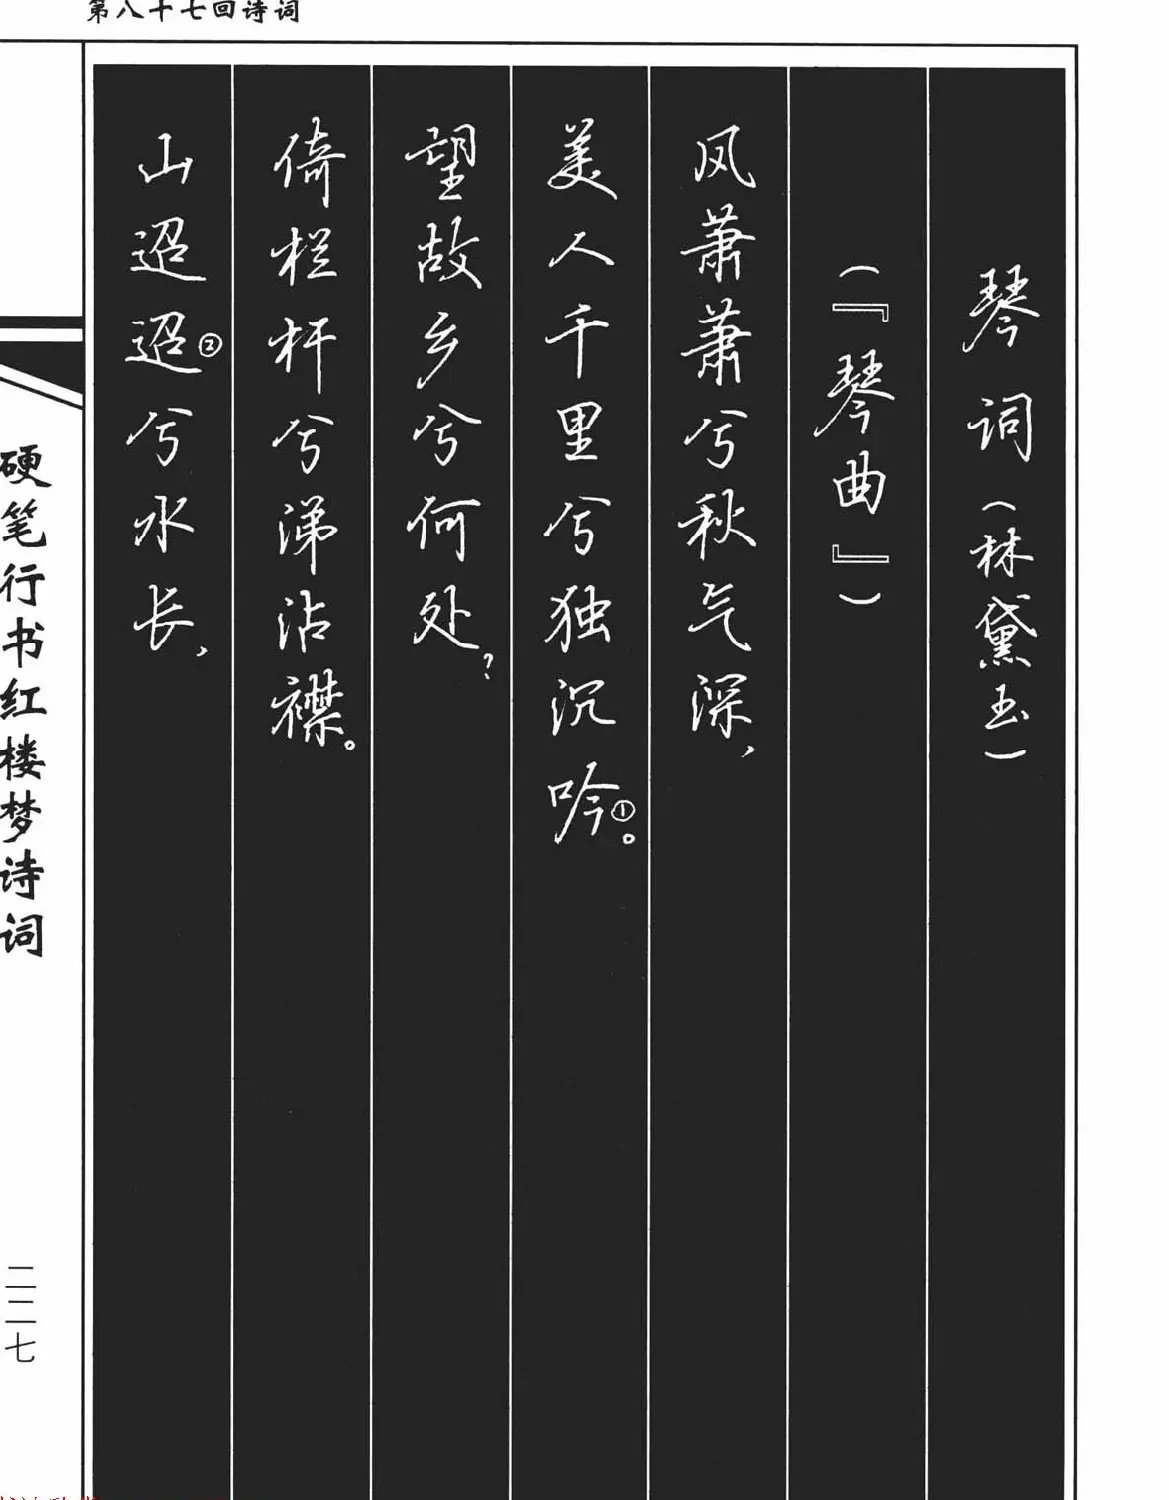 第八十七回诗词
琴词（林黛玉）
（『琴曲』）
风萧萧兮秋气深，
美人千里兮独沉吟①。
望故乡兮何处？
倚栏杆兮涕沾襟。
山迢迢②兮水长，
硬笔行书红楼梦诗词
二二七